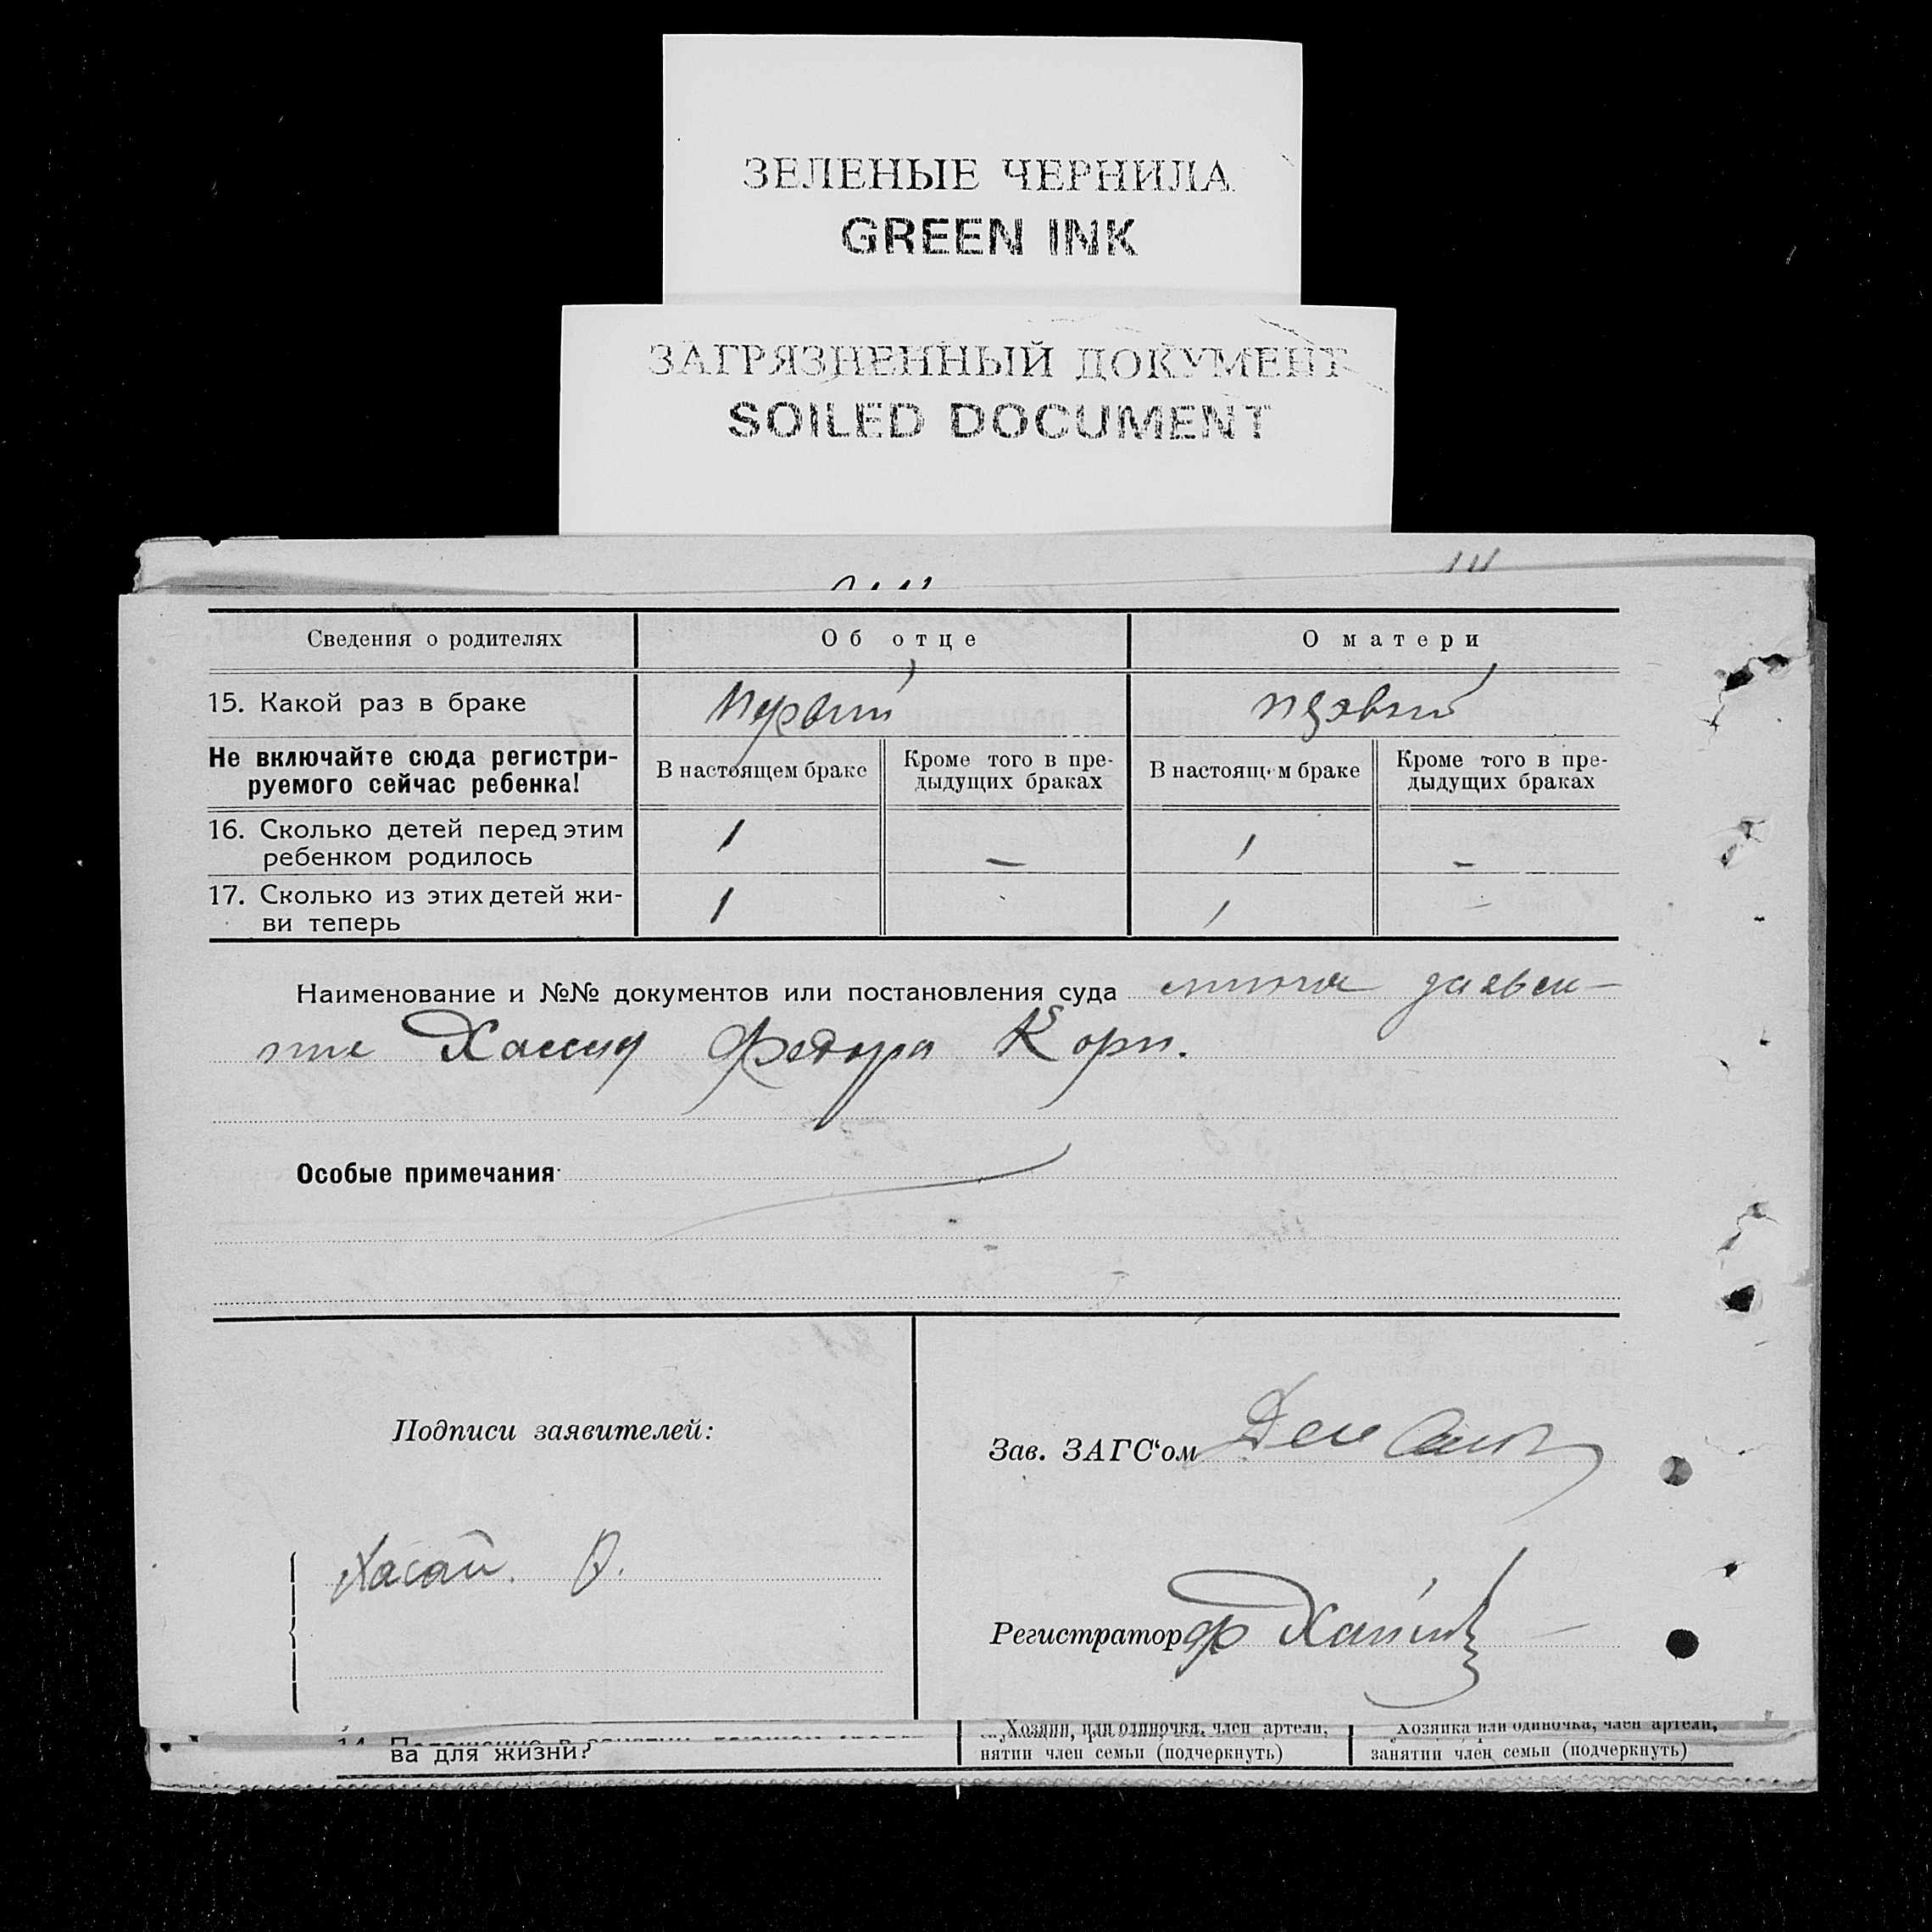 ЗЕЛЕНЫЕ ЧЕРНИЛА
GREEN INK
ЗАГРЯЗНЕННЫЙ ДОКУМЕНТ
SOILED DOCUMENT
Сведения о родителях Об отце О матери
15. Какой раз в браке первый первый
Не включайте сюда регистри-
руемого сейчас ребенка!
В настоящем браке
Кроме того в пре-
дыдущих браках
В настоящем браке
Кроме того в пре-
дыдущих браках
16. Сколько детей перед этим
ребенком родилось 1 — 1 —
17. Сколько из этих детей жи-
ви теперь 1 1 —
Наименование и №№ документов или постановления суда
Федора Корн.
Особые примечания
Подписи заявителей:
Зав. ЗАГС‘ом
Регистратор
ва для жизни?
Хозяин, или одиночка, член артели,
нятии член семьи (подчеркнуть)
Хозяйка или одиночка, член артели,
занятии член семьи (подчеркнуть)